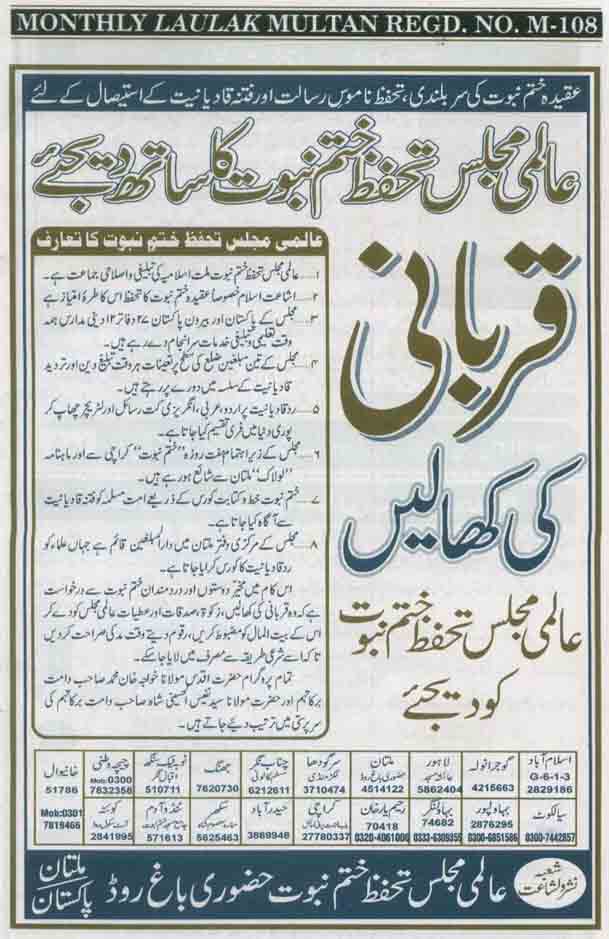 MONTHLY LAULAK MULTAN REGD. NO. M-108
عقیدہ ختم نبوت کی سربلندی، تحفظ ناموس رسالت اور فتنہ قادیانیت کے استیصال کے لئے
عالمی مجلس تحفظ ختم نبوت کا ساتھ دیجئے
قربانی
کی کھالیں
عالمی مجلس تحفظ ختم نبوت
کو دیجئے
عالمی مجلس تحفظ ختم نبوت کا تعارف
۱.... عالمی مجلس تحفظ ختم نبوت ملت اسلامیہ کی تبلیغی و اصلاحی جماعت ہے۔
۲.... اشاعت اسلام خصوصاً عقیدہ ختم نبوت کا تحفظ اس کا طرۂ امتیاز ہے
۳.... مجلس کے پاکستان اور بیرون پاکستان ۲۷ دفاتر ۱۲ دینی مدارس ہمہ
وقت تعلیمی و تبلیغی خدمات سرانجام دے رہے ہیں۔
۴.... مجلس کے تیس مبلغین ضلع کی سطح پر تعینات ہر وقت تبلیغ دین اور تردید
قادیانیت کے سلسلہ میں دورے پر رہتے ہیں۔
۵.... رد قادیانیت پر اردو، عربی، انگریزی کتب رسائل اور لٹریچر چھاپ کر
پوری دنیا میں فری تقسیم کیا جاتا ہے۔
۶.... مجلس کے زیر اہتمام ہفت روزہ "ختم نبوت" کراچی سے اور ماہنامہ
"لولاک" ملتان سے شائع ہو رہے ہیں۔
۷.... ختم نبوت خط و کتابت کورس کے ذریعے امت مسلمہ کو فتنہ قادیانیت
سے آگاہ کیا جاتا ہے۔
۸.... مجلس کے مرکزی دفتر ملتان میں دارالمبلغین قائم ہے جہاں علماء کو
رد قادیانیت کا کورس کرایا جاتا ہے۔
اس کام میں مخیر دوستوں اور دردمندان ختم نبوت سے درخواست
ہے کہ وہ قربانی کی کھالیں، زکوٰۃ، صدقات اور عطیات عالمی مجلس کو دے کر
اس کے بیت المال کو مضبوط کریں، رقوم دیتے وقت مد کی صراحت کر دیں
تاکہ اسے شرعی طریقے سے مصرف میں لایا جا سکے۔
تمام پروگرام حضرت اقدس مولانا خواجہ خان محمد صاحب دامت
برکاتہم اور حضرت مولانا سید نفیس الحسینی شاہ صاحب دامت برکاتہم کی
سرپرستی میں ترتیب دیئے جاتے ہیں۔
اسلام آباد G-6-1-3 2829186
گوجرانوالہ 4215663
لاہور 5862404
ملتان حضوری باغ روڈ 4514122
سرگودھا 3710474
چناب نگر مسلم کالونی 6212611
جھنگ 7620730
ٹوبہ ٹیک سنگھ اقبال نگر 510711
چیچہ وطنی Mob:0300 7832358
خانیوال 51786
سیالکوٹ 0300-7442857
بہاولپور 2876295 0300-6851586
بہاولنگر 74682 0333-6309355
رحیم یار خان 70418 0320-4061000
کراچی 27780337
حیدر آباد 3869948
سکھر 5625463
ٹنڈو آدم 571613
کوئٹہ 2841995
Mob:0301 7819466
شعبہ نشر و اشاعت
عالمی مجلس تحفظ ختم نبوت حضوری باغ روڈ
ملتان
پاکستان